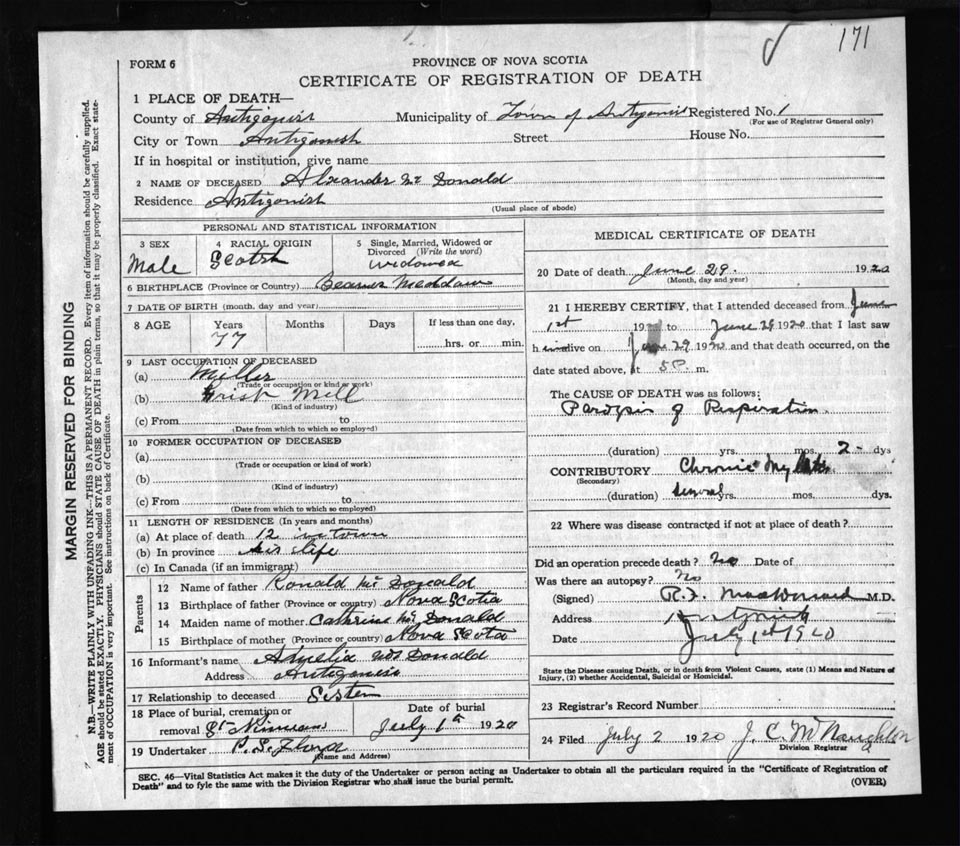 171
FORM 6
PROVINCE OF NOVA SCOTIA
CERTIFICATE OF REGISTRATION OF DEATH
1 PLACE OF DEATH—
County of Antigonish Municipality of Town of Antigonish Registered No. 1
(For use of Registrar General only)
City or Town Antigonish Street House No.
If in hospital or institution, give name
2 NAME OF DECEASED Alxander Mc Donald
Residence Antigonish
(Usual place of abode)
PERSONAL AND STATISTICAL INFORMATION
3 SEX
Male
4 RACIAL ORIGIN
Scotch
5 Single, Married, Widowed or
Divorced (Write the word)
widowed
6 BIRTHPLACE (Province or Country) Meadow
7 DATE OF BIRTH (month, day and year)
8 AGE Years Months Days If less than one day,
77 hrs. or min.
9 LAST OCCUPATION OF DECEASED
(a) Miller
(Trade or occupation or kind or work)
(b) Grist Mill
(Kind of industry)
(c) From to
(Date from which to which so employed)
10 FORMER OCCUPATION OF DECEASED
(a)
(Trade or occupation or kind of work)
(b)
(Kind of industry)
(c) From to
(Date from which to which so employed)
11 LENGTH OF RESIDENCE (In years and months)
(a) At place of death 12 in town
(b) In province his life
(c) In Canada (if an immigrant)
Parents
12 Name of father Ronald Mc Donald
13 Birthplace of father (Province or country) Nova Scotia
14 Maiden name of mother Catherine Mc Donald
15 Birthplace of mother (Province or country) Nova Scota
16 Informant's name Amelia McDonald
Address Antigonish
17 Relationship to deceased Sister
18 Place of burial, cremation or Date of burial
removal St Ninians July 1st 1920
19 Undertaker P. S. Floyd
(Name and Address)
MEDICAL CERTIFICATE OF DEATH
20 Date of death June 29. 1920
(Month, day and year)
21 I HEREBY CERTIFY, that I attended deceased from June
1st 192 to June 29 1920 that I last saw
h im alive on June 29 1920 and that death occurred, on the
date stated above, at 5 P. m.
The CAUSE OF DEATH was as follows:
Paralysis of Respiration.
(duration) yrs. mos. 2 - dys
CONTRIBUTORY Chronic
(Secondary)
(duration) several yrs. mos. dys.
22 Where was disease contracted if not at place of death?
Did an operation precede death? No Date of
Was there an autopsy? No
(Signed) M.D.
Address Antigonish
Date July 1st 1920
State the Disease causing Death, or in death from Violent Causes, state (1) Means and Nature of
Injury, (2) whether Accidental, Suicidal or Homicidal.
23 Registrar's Record Number
24 Filed July 2 1920 J. C. McNaughton
Division Registrar
SEC. 46—Vital Statistics Act makes it the duty of the Undertaker or person acting as Undertaker to obtain all the particulars required in the "Certificate of Registration of
Death" and to fyle the same with the Division Registrar who shall issue the burial permit. (OVER)
MARGIN RESERVED FOR BINDING
N.B.—WRITE PLAINLY WITH UNFADING INK—THIS IS A PERMANENT RECORD. Every item of information should be carefully supplied.
AGE should be stated EXACTLY. PHYSICIANS should STATE CAUSE OF DEATH in plain terms, so that it may be properly classified. Exact state-
ment of OCCUPATION is very important. See instructions on back of Certificate.